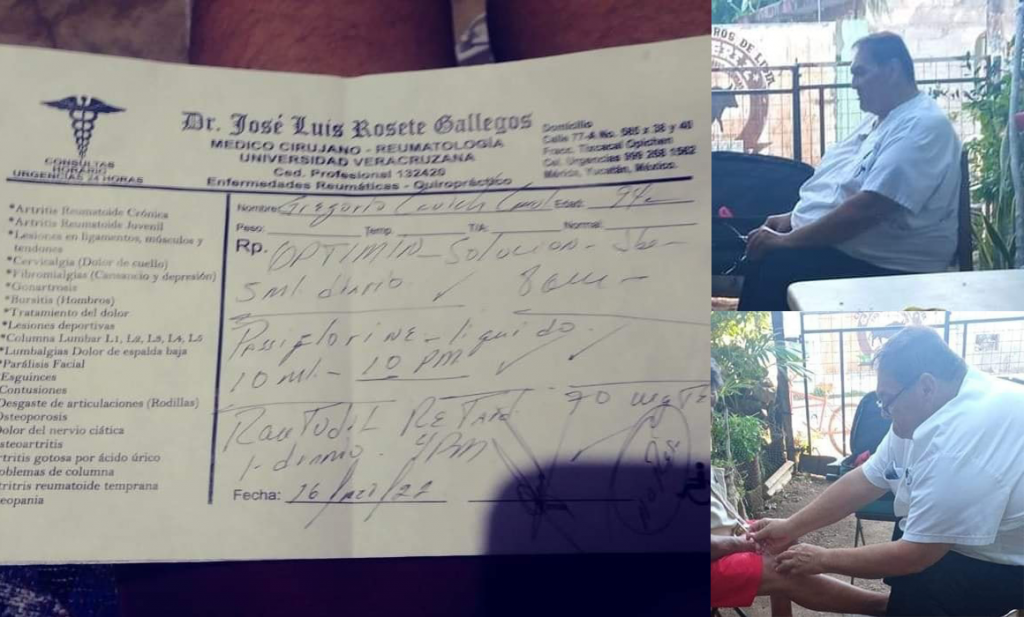 CONSULTAS
HORARIO
URGENCIAS 24 HORAS
Dr. José Luis Rosete Gallegos
MEDICO CIRUJANO - REUMATOLOGÍA
UNIVERSIDAD VERACRUZANA
Ced. Profesional 132420
Enfermedades Reumáticas - Quiropráctico
Domicilio
Calle 77-A No. 565 x 38 y 40
Fracc. Tixcacal Opichen
Cel. Urgencias 999 268 1562
Mérida, Yucatán, México.
*Artritis Reumatoide Crónica
*Artritis Reumatoide Juvenil
*Lesiones en ligamentos, músculos y
tendones
*Cervicalgia (Dolor de cuello)
*Fibromialgias (Cansancio y depresión)
*Gonartrosis
*Bursitis (Hombros)
*Tratamiento del dolor
*Lesiones deportivas
*Columna Lumbar L1, L2, L3, L4, L5
*Lumbalgias Dolor de espalda baja
*Parálisis Facial
Esguinces
Contusiones
Desgaste de articulaciones (Rodillas)
Osteoporosis
Dolor del nervio ciática
steoartritis
rtritis gotosa por ácido úrico
oblemas de columna
rtritris reumatoide temprana
eopania
Nombre: Gregorio Edad: 94
Peso: Temp. T/A: Normal:
Rp. OPTIMIN - Solucion -
5 ml. diario
Passiflorine - liquido.
10 ml. - 10 PM
1 - diario. 4 PM
Fecha: 16/
ROS DE LIDIA